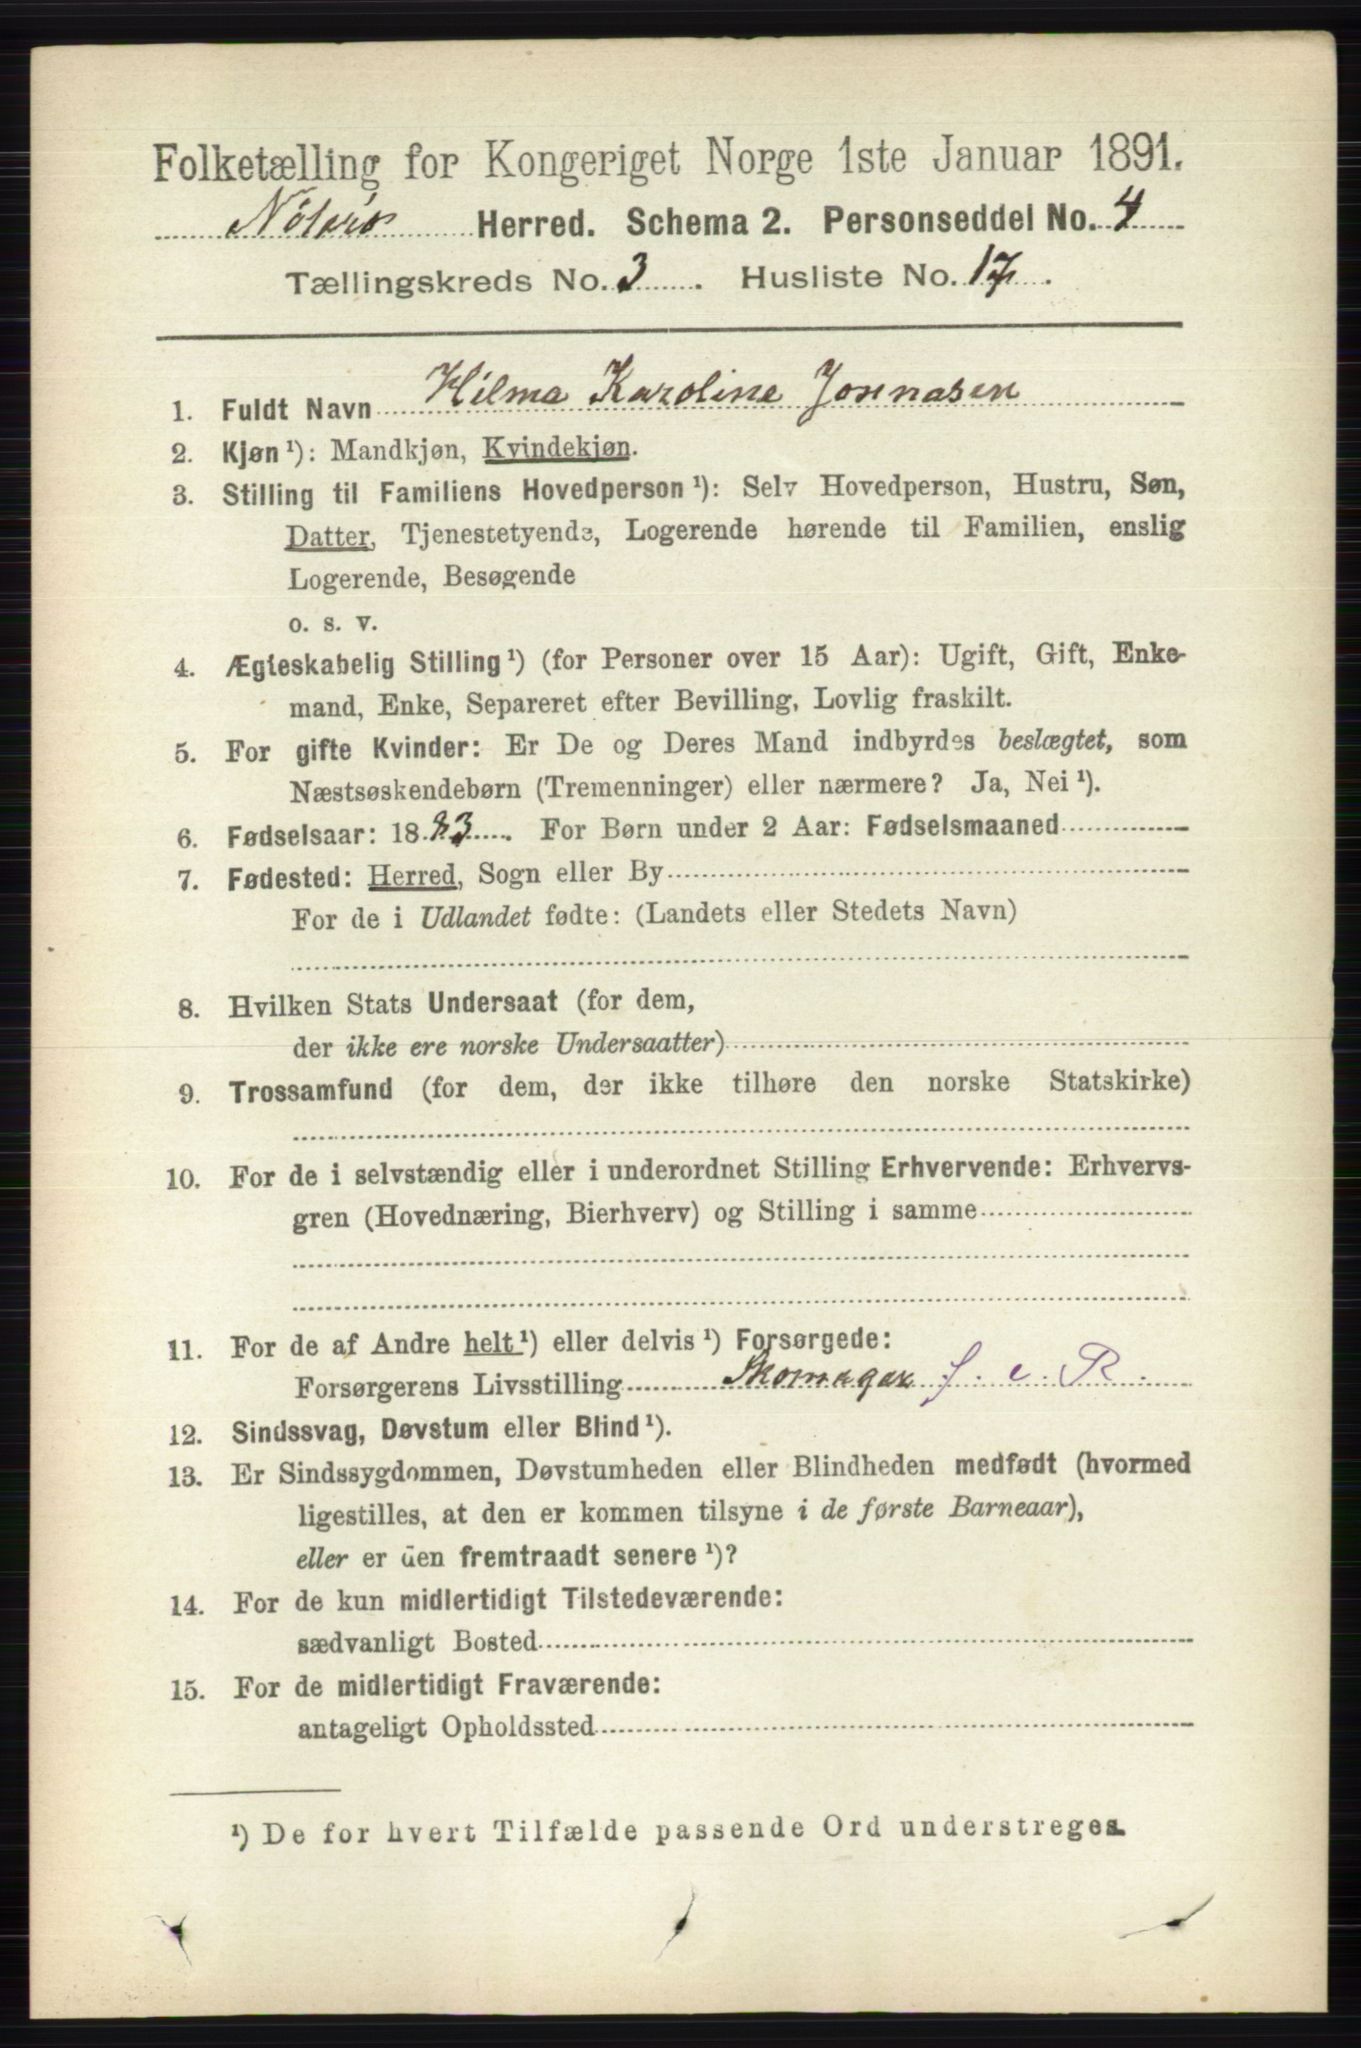 Folketælling for Kongeriget Norge 1ste Januar 1891.
Nøterø Herred. Schema 2. Personseddel No. 4
Tællingskreds No. 3. Husliste No. 17.
1. Fuldt Navn Hilma Karoline Jonnasen
2. Kjøn ¹): Mandkjøn, Kvindekjøn.
3. Stilling til Familiens Hovedperson ¹): Selv Hovedperson, Hustru, Søn,
Datter, Tjenestetyende, Logerende hørende til Familien, enslig
Logerende, Besøgende
o. s. v.
4. Ægteskabelig Stilling ¹) (for Personer over 15 Aar): Ugift, Gift, Enke-
mand, Enke, Separeret efter Bevilling, Lovlig fraskilt.
5. For gifte Kvinder: Er De og Deres Mand indbyrdes beslægtet, som
Næstsøskendebørn (Tremenninger) eller nærmere? Ja, Nei ¹).
6. Fødselsaar: 1883. For Børn under 2 Aar: Fødselsmaaned
7. Fødested: Herred, Sogn eller By
For de i Udlandet fødte: (Landets eller Stedets Navn)
8. Hvilken Stats Undersaat (for dem,
der ikke ere norske Undersaatter)
9. Trossamfund (for dem, der ikke tilhøre den norske Statskirke)
10. For de i selvstændig eller i underordnet Stilling Erhvervende: Erhvervs-
gren (Hovednæring, Bierhverv) og Stilling i samme
11. For de af Andre helt ¹) eller delvis ¹) Forsørgede:
Forsørgerens Livsstilling Skomager f. e. R.
12. Sindssvag, Døvstum eller Blind ¹).
13. Er Sindssygdommen, Døvstumheden eller Blindheden medfødt (hvormed
ligestilles, at den er kommen tilsyne i de første Barneaar),
eller er den fremtraadt senere ¹)?
14. For de kun midlertidigt Tilstedeværende:
sædvanligt Bosted
15. For de midlertidigt Fraværende:
antageligt Opholdssted
¹) De for hvert Tilfælde passende Ord understreges.